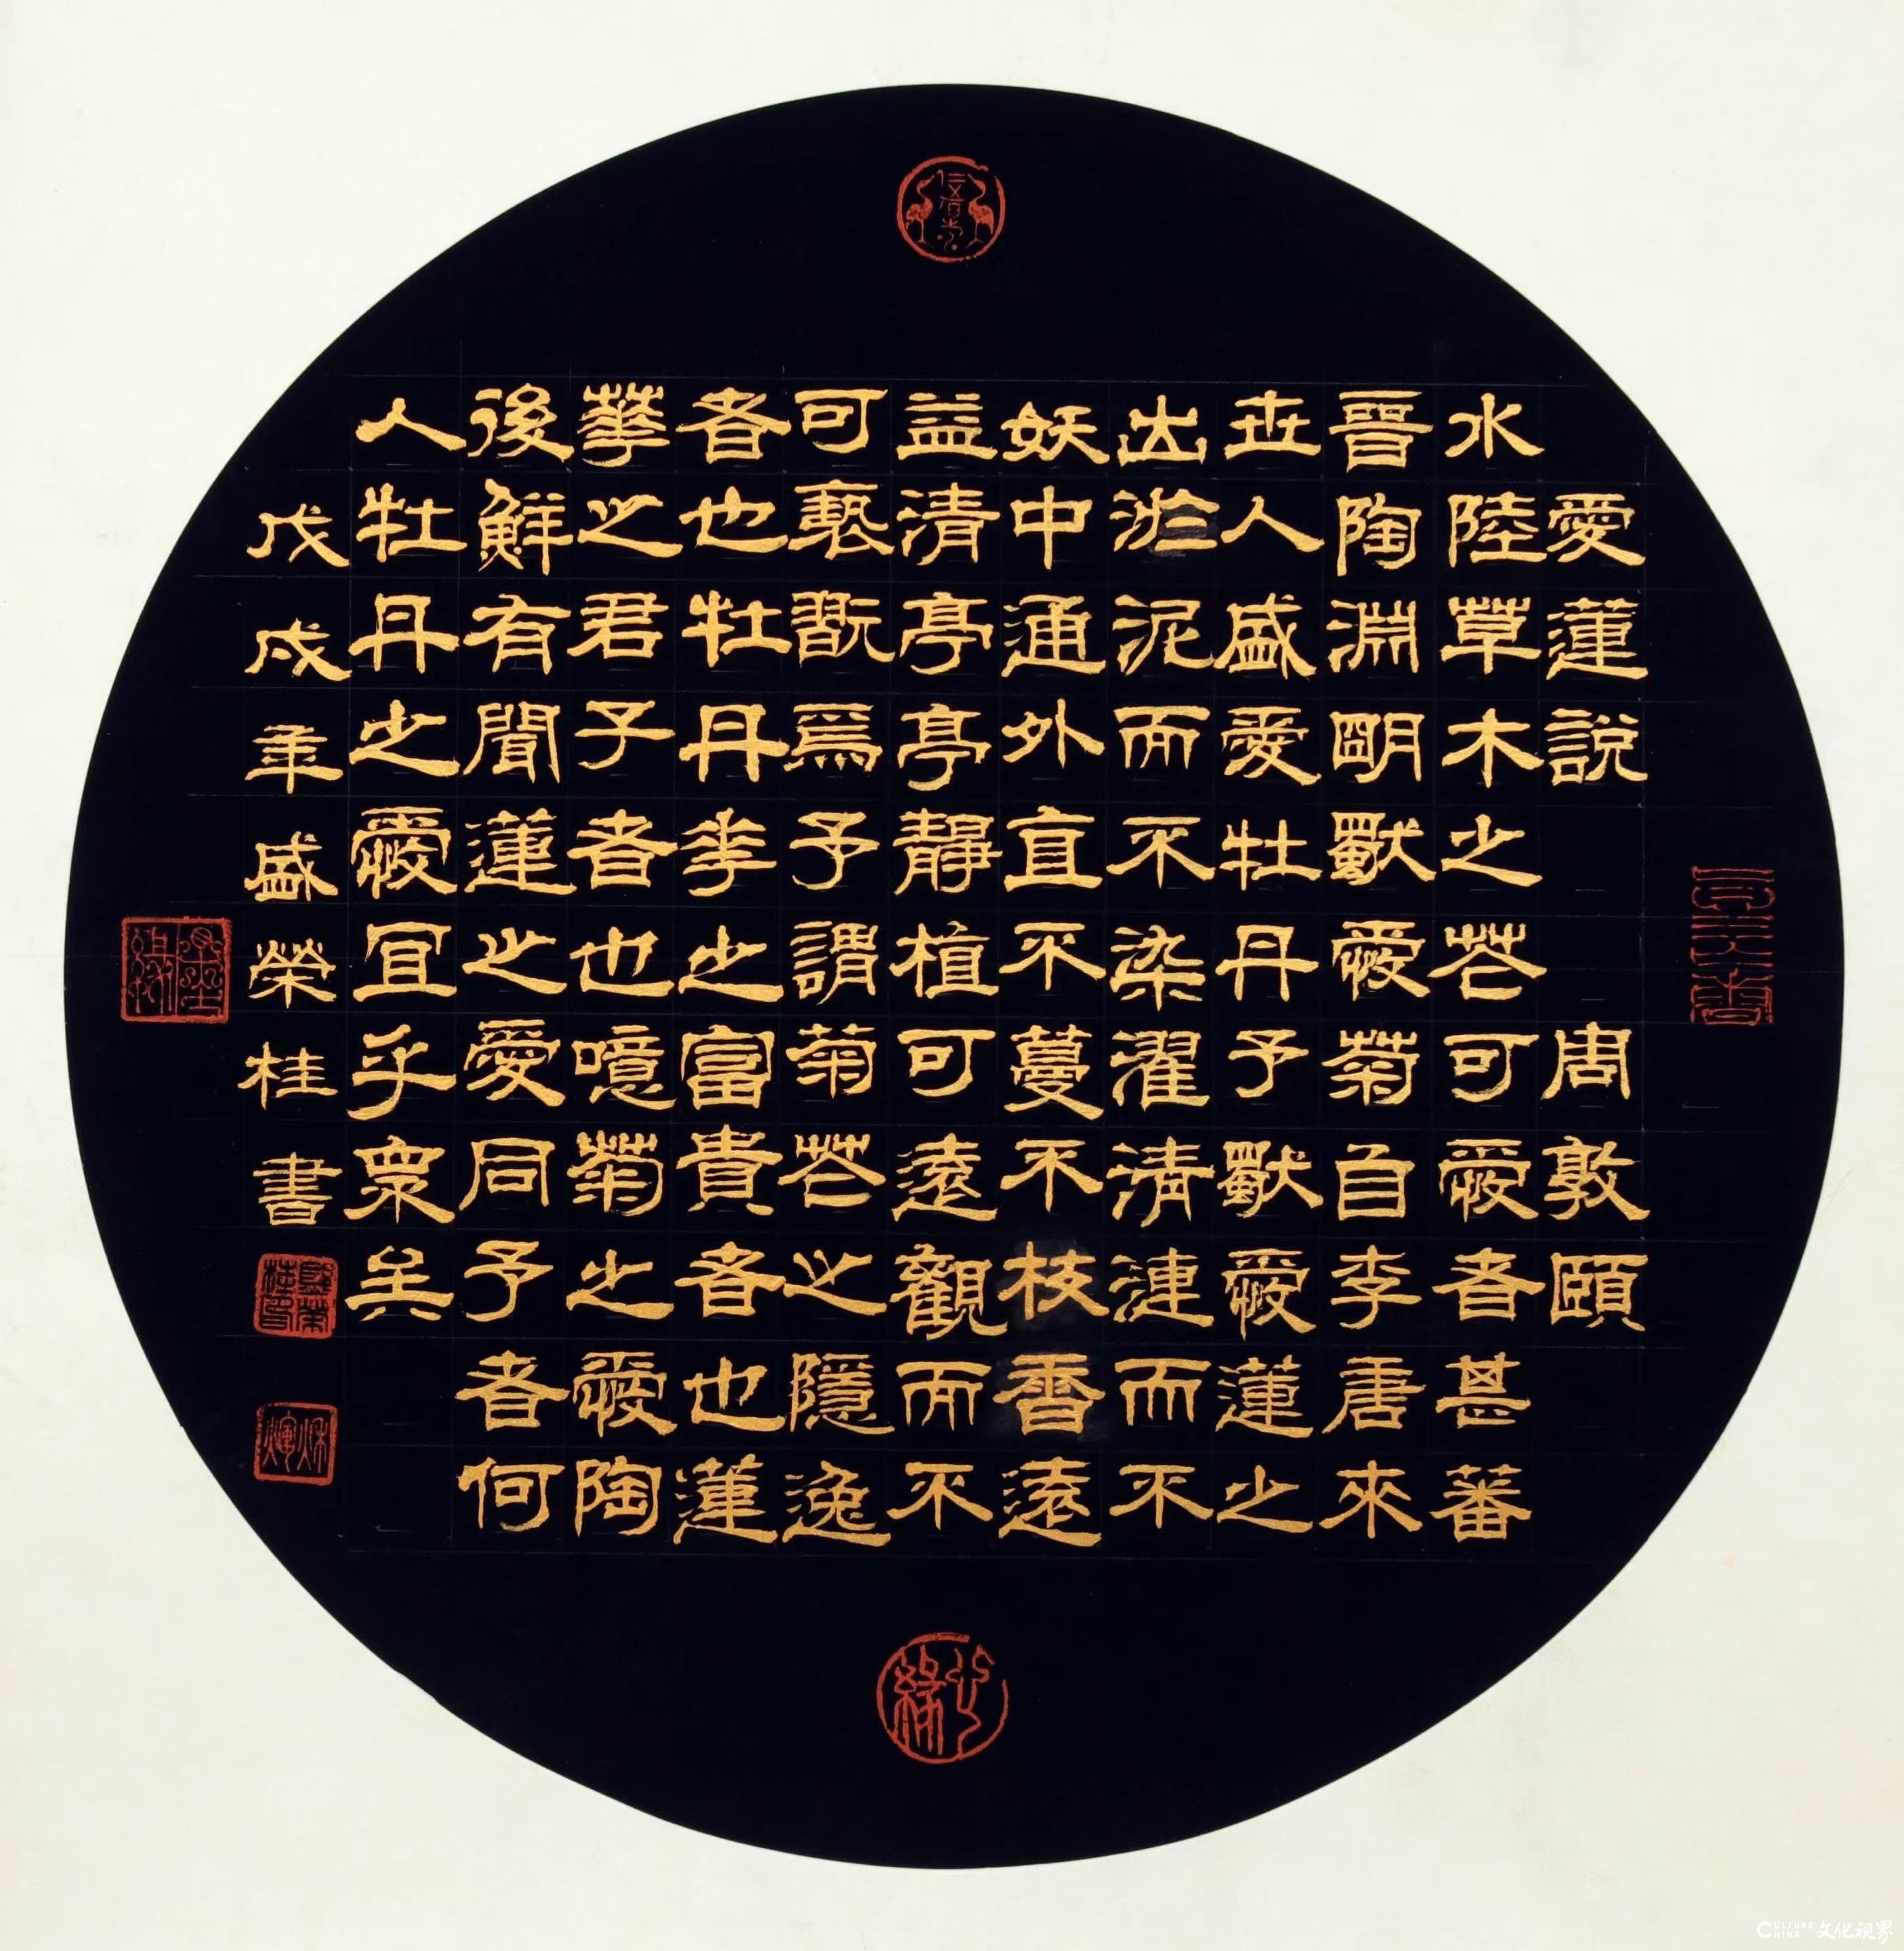 愛蓮說 周敦頤
水陸草木之花可愛者甚蕃
晉陶淵明獨愛菊自李唐來
世人盛愛牡丹予獨愛蓮之
出淤泥而不染濯清漣而不
妖中通外直不蔓不枝香遠
益清亭亭靜植可遠觀而不
可褻翫焉予謂菊花之隱逸
者也牡丹華之富貴者也蓮
華之君子者也噫菊之愛陶
後鮮有聞蓮之愛同予者何
人牡丹之愛宜乎眾矣
戊戌年盛榮桂書
盛榮桂印
CULTURE CHINA 文化视界